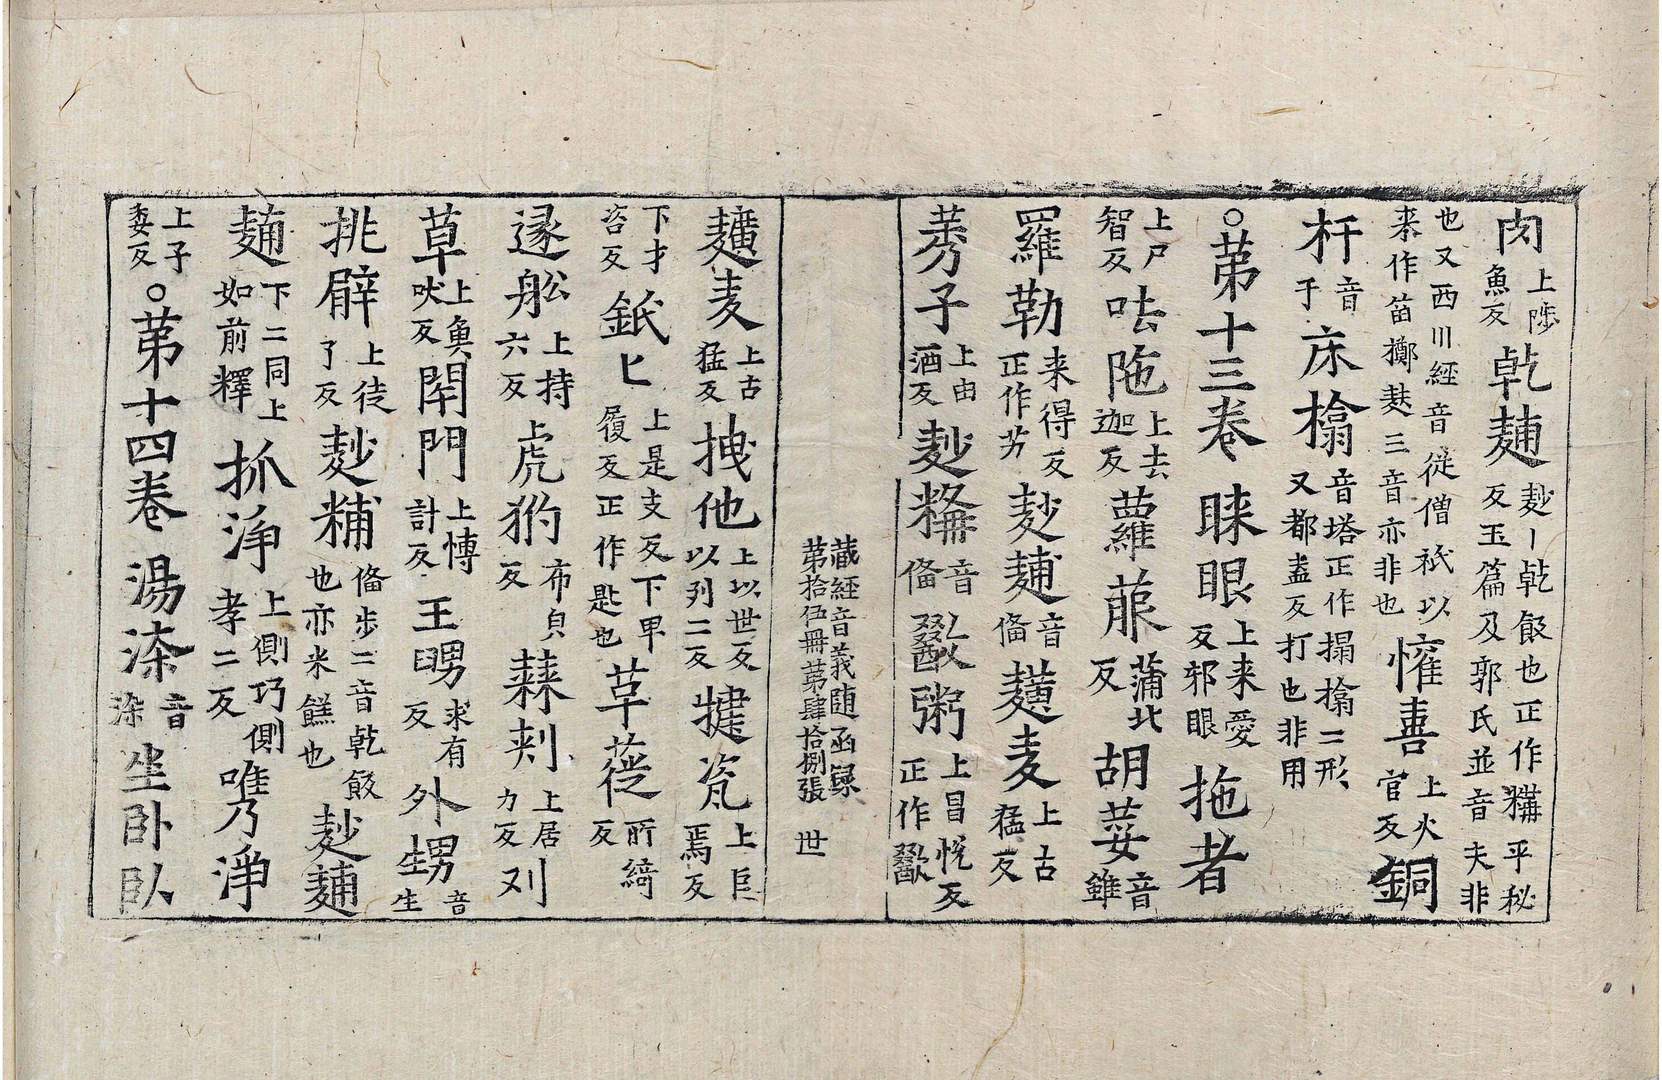 肉上陟魚反乾麺麨丨乾飯也正作𥻨平秘反玉篇及郭氏並音夫非
也又西川經音從僧祇以来作笛擲麸三音亦非也憜喜上火官反銅
杅音于床搶音塔正作搨搶二形又都盍反打也非用
○苐十三卷睞眼上来愛反邪眼拖者
上尸智反呿陁上去迦反蘿菔蒲北反胡荽音雖
羅勒来得反正作艻麨麺音俻䵃麦上古猛反
莠子上由酒反麨𥻨音俻歠粥上昌悅反正作歠
藏經音義随函録第拾伍冊苐肆拾捌張 世
䵃麦上古猛反拽他上以世反以列二反揵瓷上巨焉反
下才咨反鈘匕上是支反下卑履反正作匙也草蓰所綺反
逐舩上持六反虎豹布皃反蕀刾上居力反又刂
草上魚吠反閇門上愽計反王甥求有反外甥音生
挑擗上徒了反麨䊇俻步二音乾餃也亦米䭏也麨麺
麺下二同上如前釋抓淨上側巧側孝二反唯乃淨
上子委反○苐十四卷湯㓒音㓒坐卧卧